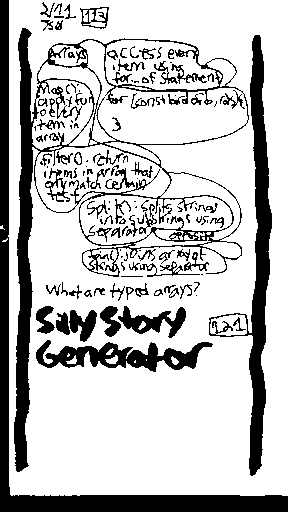 2/11
113
Arrays
access every
item using
for...of statement
for (const bird of birds) {
}
Map():
apply fun
to every
item in
array
filter(): return
items in array that
only match certain
test
Split(): splits strings
into substrings using
separator
opposite
join(): joins array of
strings using separator
What are typed arrays?
Silly Story
Generator
121